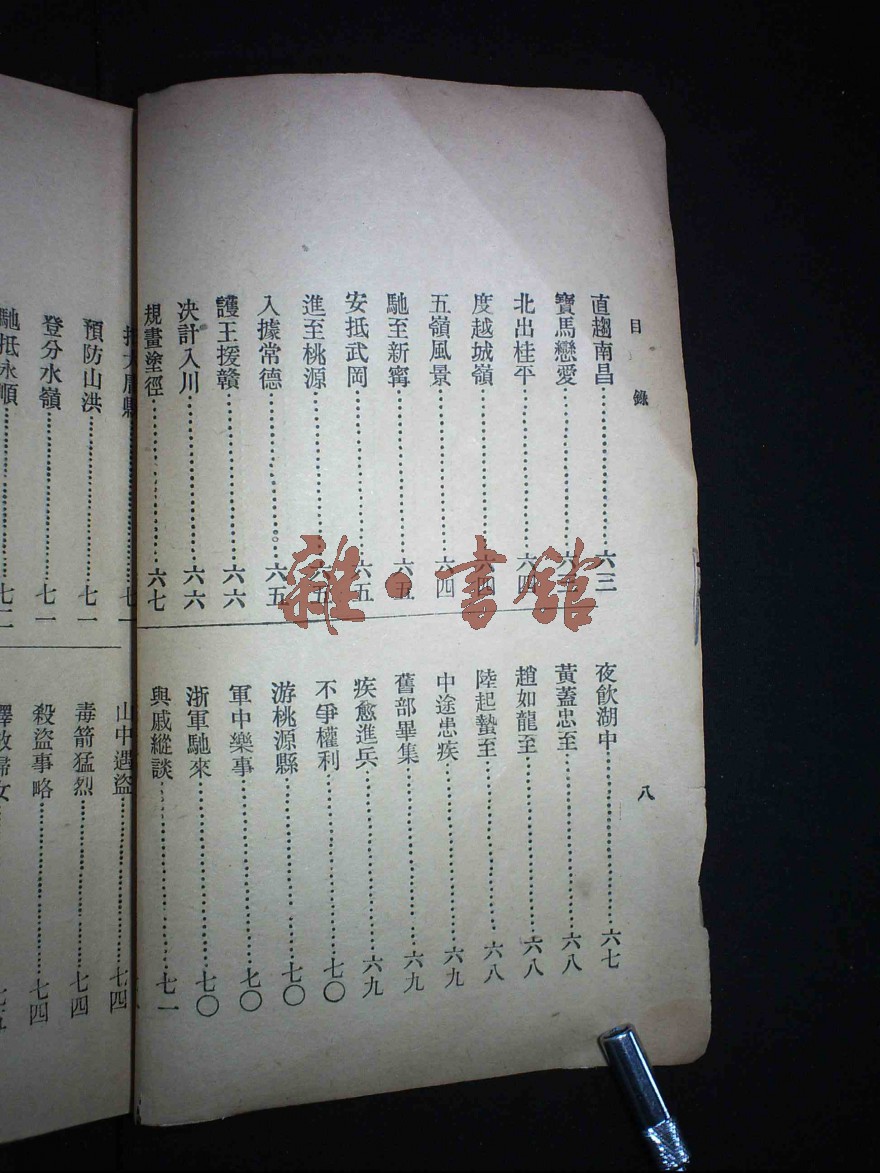 目錄
八
直趨南昌………六三
寶馬戀愛………六三
北出桂平………六四
度越城嶺………六四
五嶺風景………六四
馳至新寗………六五
安抵武岡………六五
進至桃源………六五
入據常德………六五
護王援贛………六六
决計入川………六六
規畫塗徑………六七
夜飲湖中………六七
黃蓋忠至………六八
趙如龍至………六八
陸起蟄至………六八
中途患疾………六九
舊部畢集………六九
疾愈進兵………六九
不爭權利………七〇
游桃源縣………七〇
軍中樂事………七〇
浙軍馳來………七〇
與戚縱談………七一
大庸縣………七一
預防山洪………七一
登分水嶺………七一
馳抵永順………七二
山中遇盜………七四
毒箭猛烈………七四
殺盜事略………七四
釋放婦女………七五
雜·書館